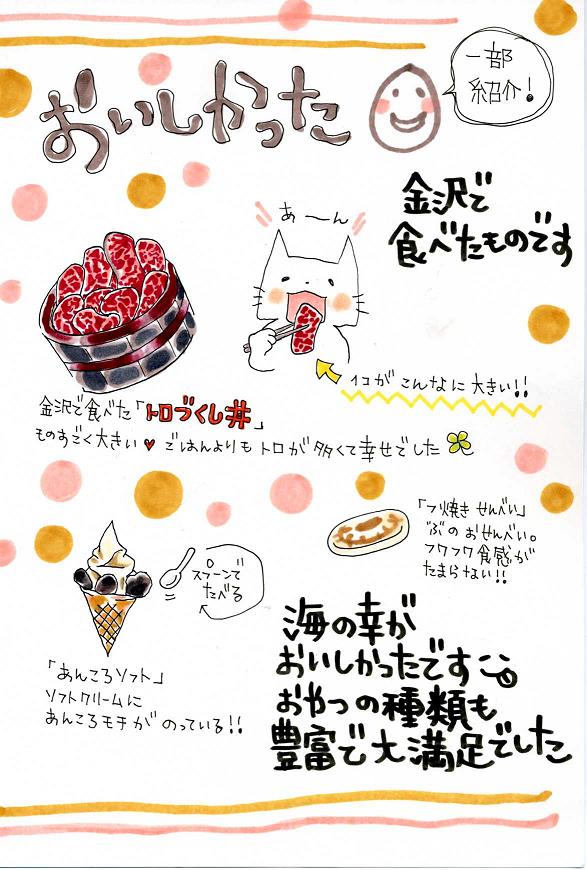 おいしかった
一部
紹介！
金沢で
食べたものです
あ〜ん
1コがこんなに大きい!!
金沢で食べた「トロづくし丼」
ものすごく大きい♥ ごはんよりもトロが多くて幸せでした
「フ焼きせんべい」
"ぶのおせんべい。
フワフワ食感が
たまらない!!
スプーンで
たべる
「あんころソフト」
ソフトクリームに
あんころモチがのっている!!
海の幸が
おいしかったです
おやつの種類も
豊富で大満足でした